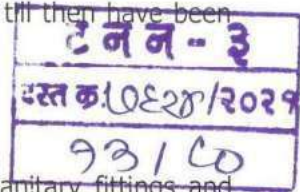 till then have been
ट न न - ३
दस्त क्र.७६२४/२०२१
१३ / ८०
anitary fittings and